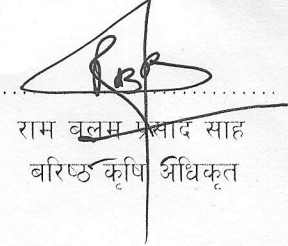 राम बलम प्रसाद साह
बरिष्ठ कृषि अधिकृत